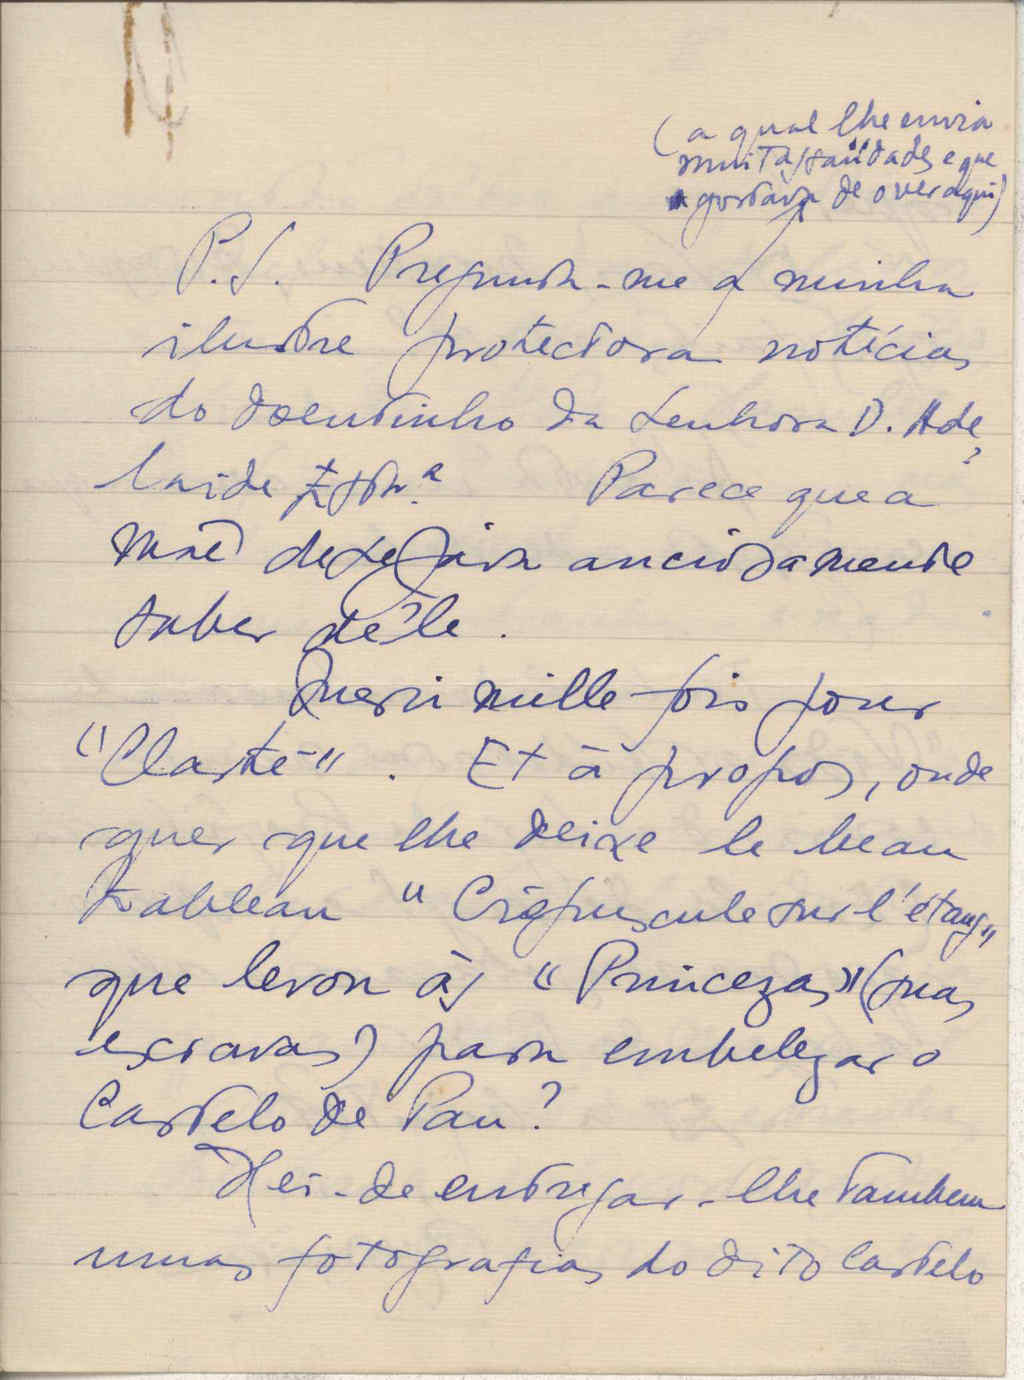 (a qual lhe envia
muitas saudades e que
gostava de o ver aqui)
P.S. Pregunta-me a minha
ilustre protectora notícias
do doentinho da Senhora D. Ade
laide
? Parece que a
Mãe desejava anciosamente
saber dêle.
Merci mille fois pour
"Clarté". Et à propos, onde
quer que lhe deixe le beau
tableau "Crépuscule sur l'étang"
que levou às "Princezas" (suas
escravas) para embelezar o
Castelo de Pau?
Hei-de entregar-lhe tambem
umas fotografias do dito Castelo